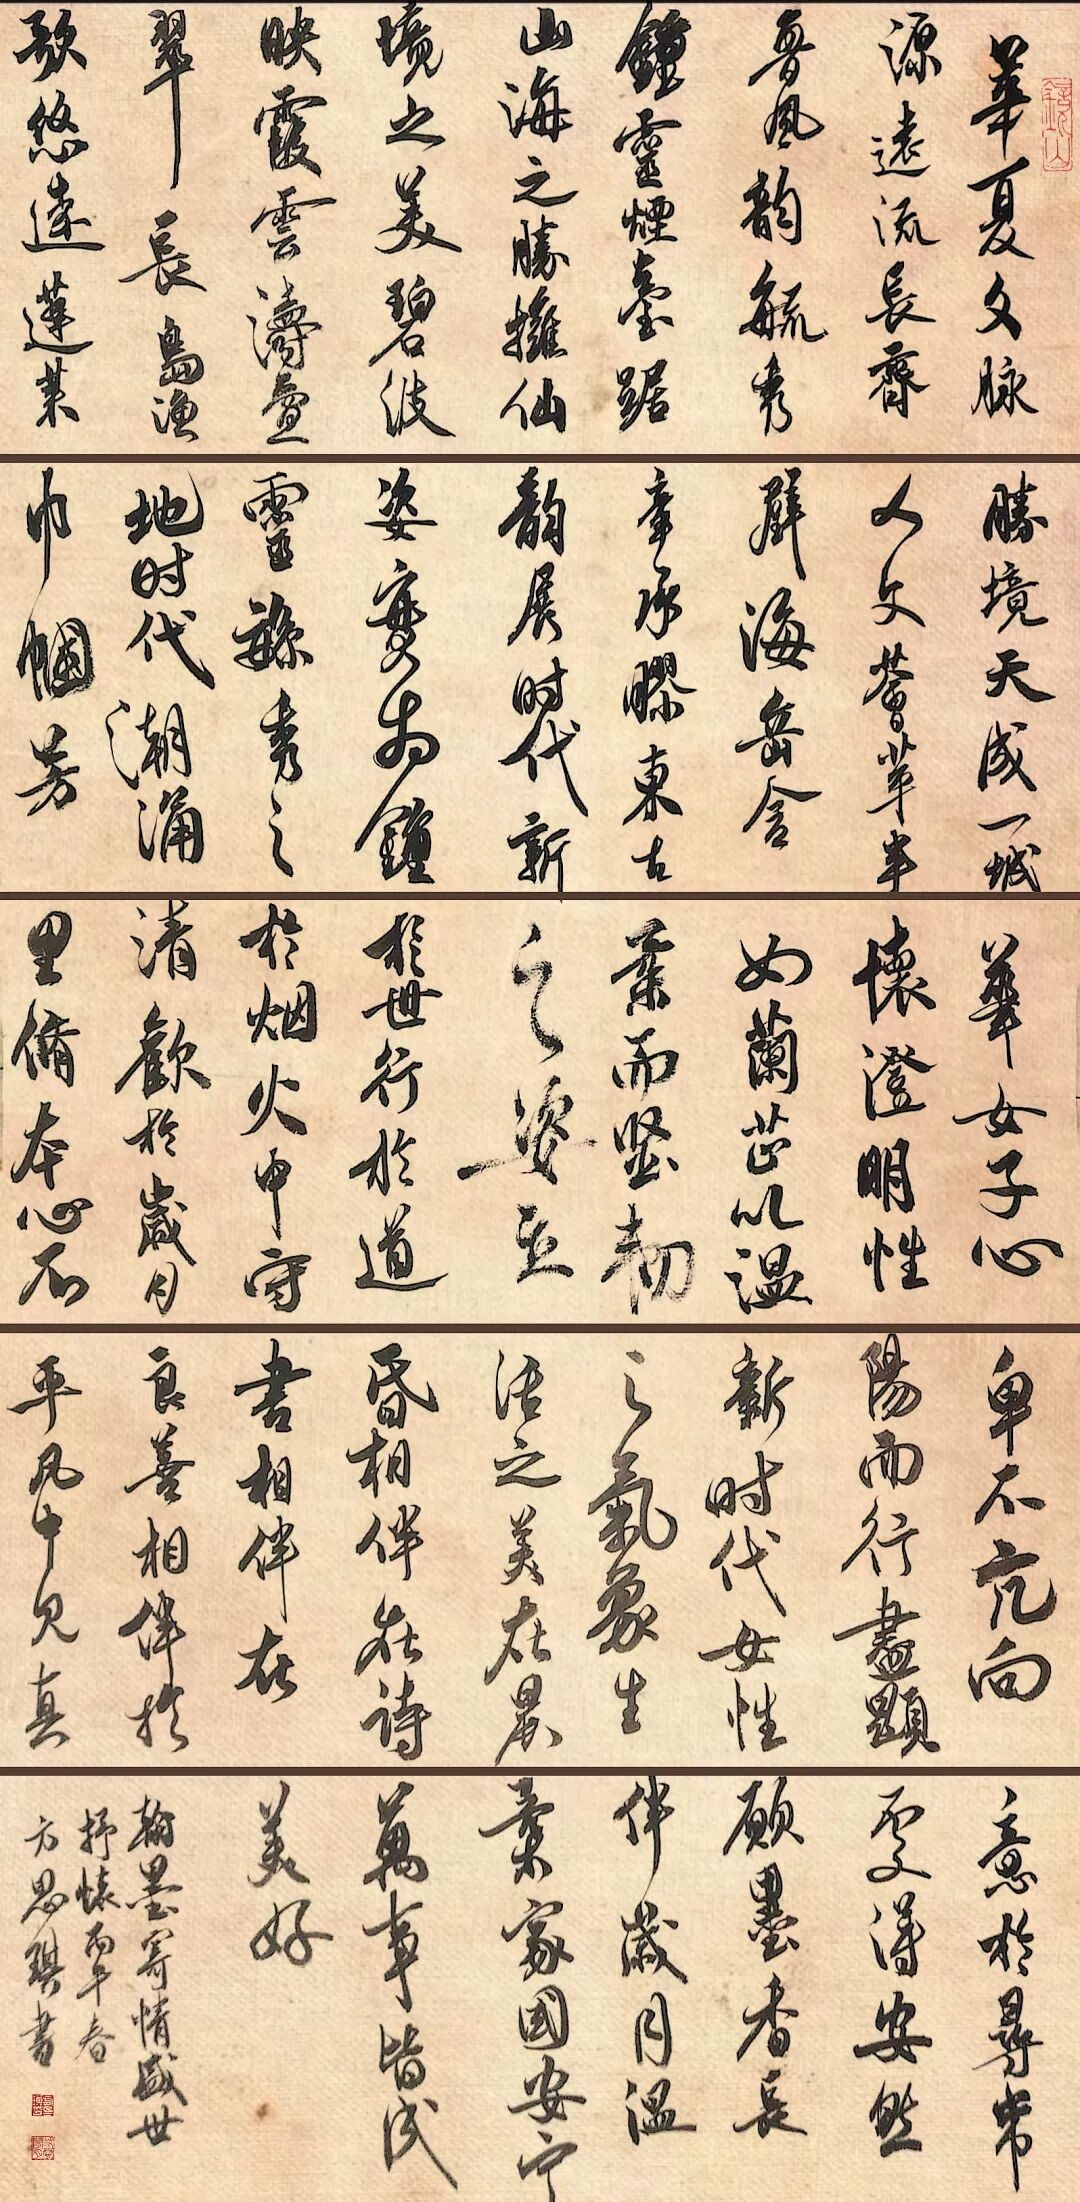 華夏文脉
源遠流長齊
魯風韵毓秀
鐘靈煙臺踞
山海之勝擁仙
境之美碧波
映霞雲濤疊
翠長島漁
歌悠遠蓬萊
勝境天成一城
人文薈萃半
壁海岳含
章承膠東古
韵展时代新
姿齊为鐘
靈毓秀之
地时代潮涌
巾帼芳
華女子心
懷澄明性
如蘭芷以温
柔而坚韧
之姿立
於世行於道
於烟火中守
清歡於歲月
里脩本心不
卑不亢向
陽而行盡顯
新时代女性
之氣象生
活之美在晨
昏相伴在诗
書相伴在
良善相伴於
平凡中见真
意於尋常
処得安然
願墨香長
伴歲月温
柔家國安宁
萬事皆成
美好
翰墨寄情盛世
抒懷丙午春
方思琪書